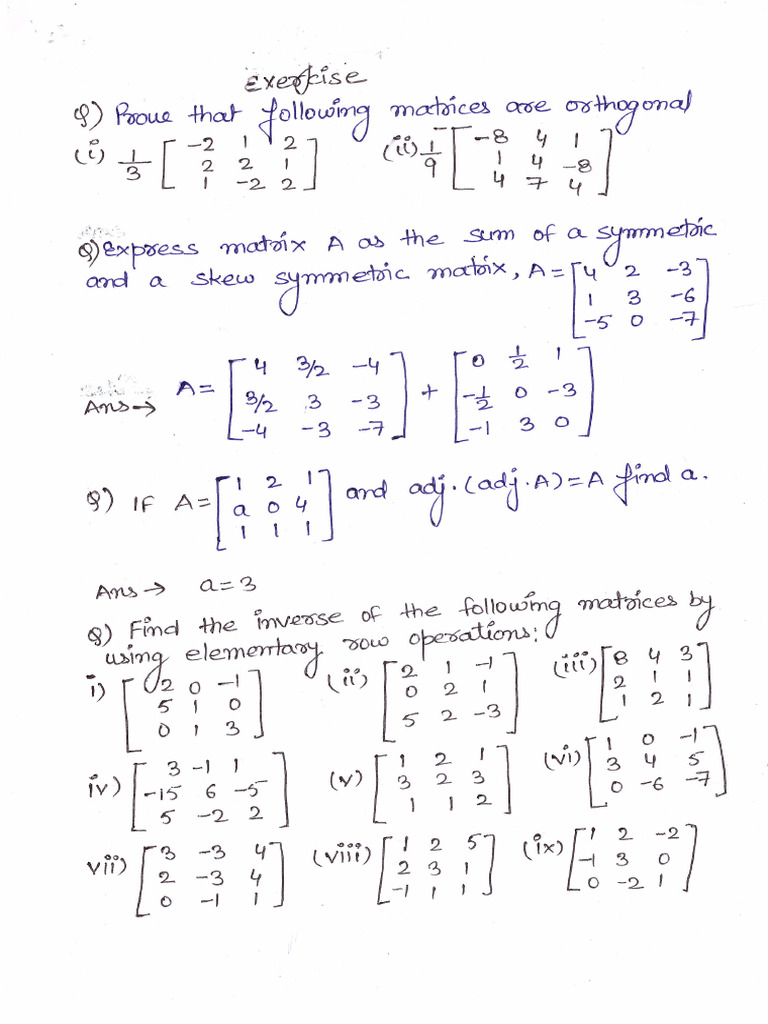 Exercise
Q) Prove that following matrices are orthogonal
(i) 1/3 [-2 1 2; 2 2 1; 1 -2 2] (ii) 1/9 [-8 4 1; 1 4 -8; 4 7 4]
Q) Express matrix A as the sum of a symmetric
and a skew symmetric matrix, A = [4 2 -3; 1 3 -6; -5 0 -7]
Ans→ A = [4 3/2 -4; 3/2 3 -3; -4 -3 -7] + [0 1/2 1; -1/2 0 -3; -1 3 0]
Q) IF A = [1 2 1; a 0 4; 1 1 1] and adj.(adj.A) = A find a.
Ans→ a=3
Q) Find the inverse of the following matrices by
using elementary row operations:
i) [2 0 -1; 5 1 0; 0 1 3] (ii) [2 1 -1; 0 2 1; 5 2 -3] (iii) [8 4 3; 2 1 1; 1 2 1]
iv) [3 -1 1; -15 6 -5; 5 -2 2] (v) [1 2 1; 3 2 3; 1 1 2] (vi) [1 0 -1; 3 4 5; 0 -6 -7]
vii) [3 -3 4; 2 -3 4; 0 -1 1] (viii) [1 2 5; 2 3 1; -1 1 1] (ix) [1 2 -2; -1 3 0; 0 -2 1]